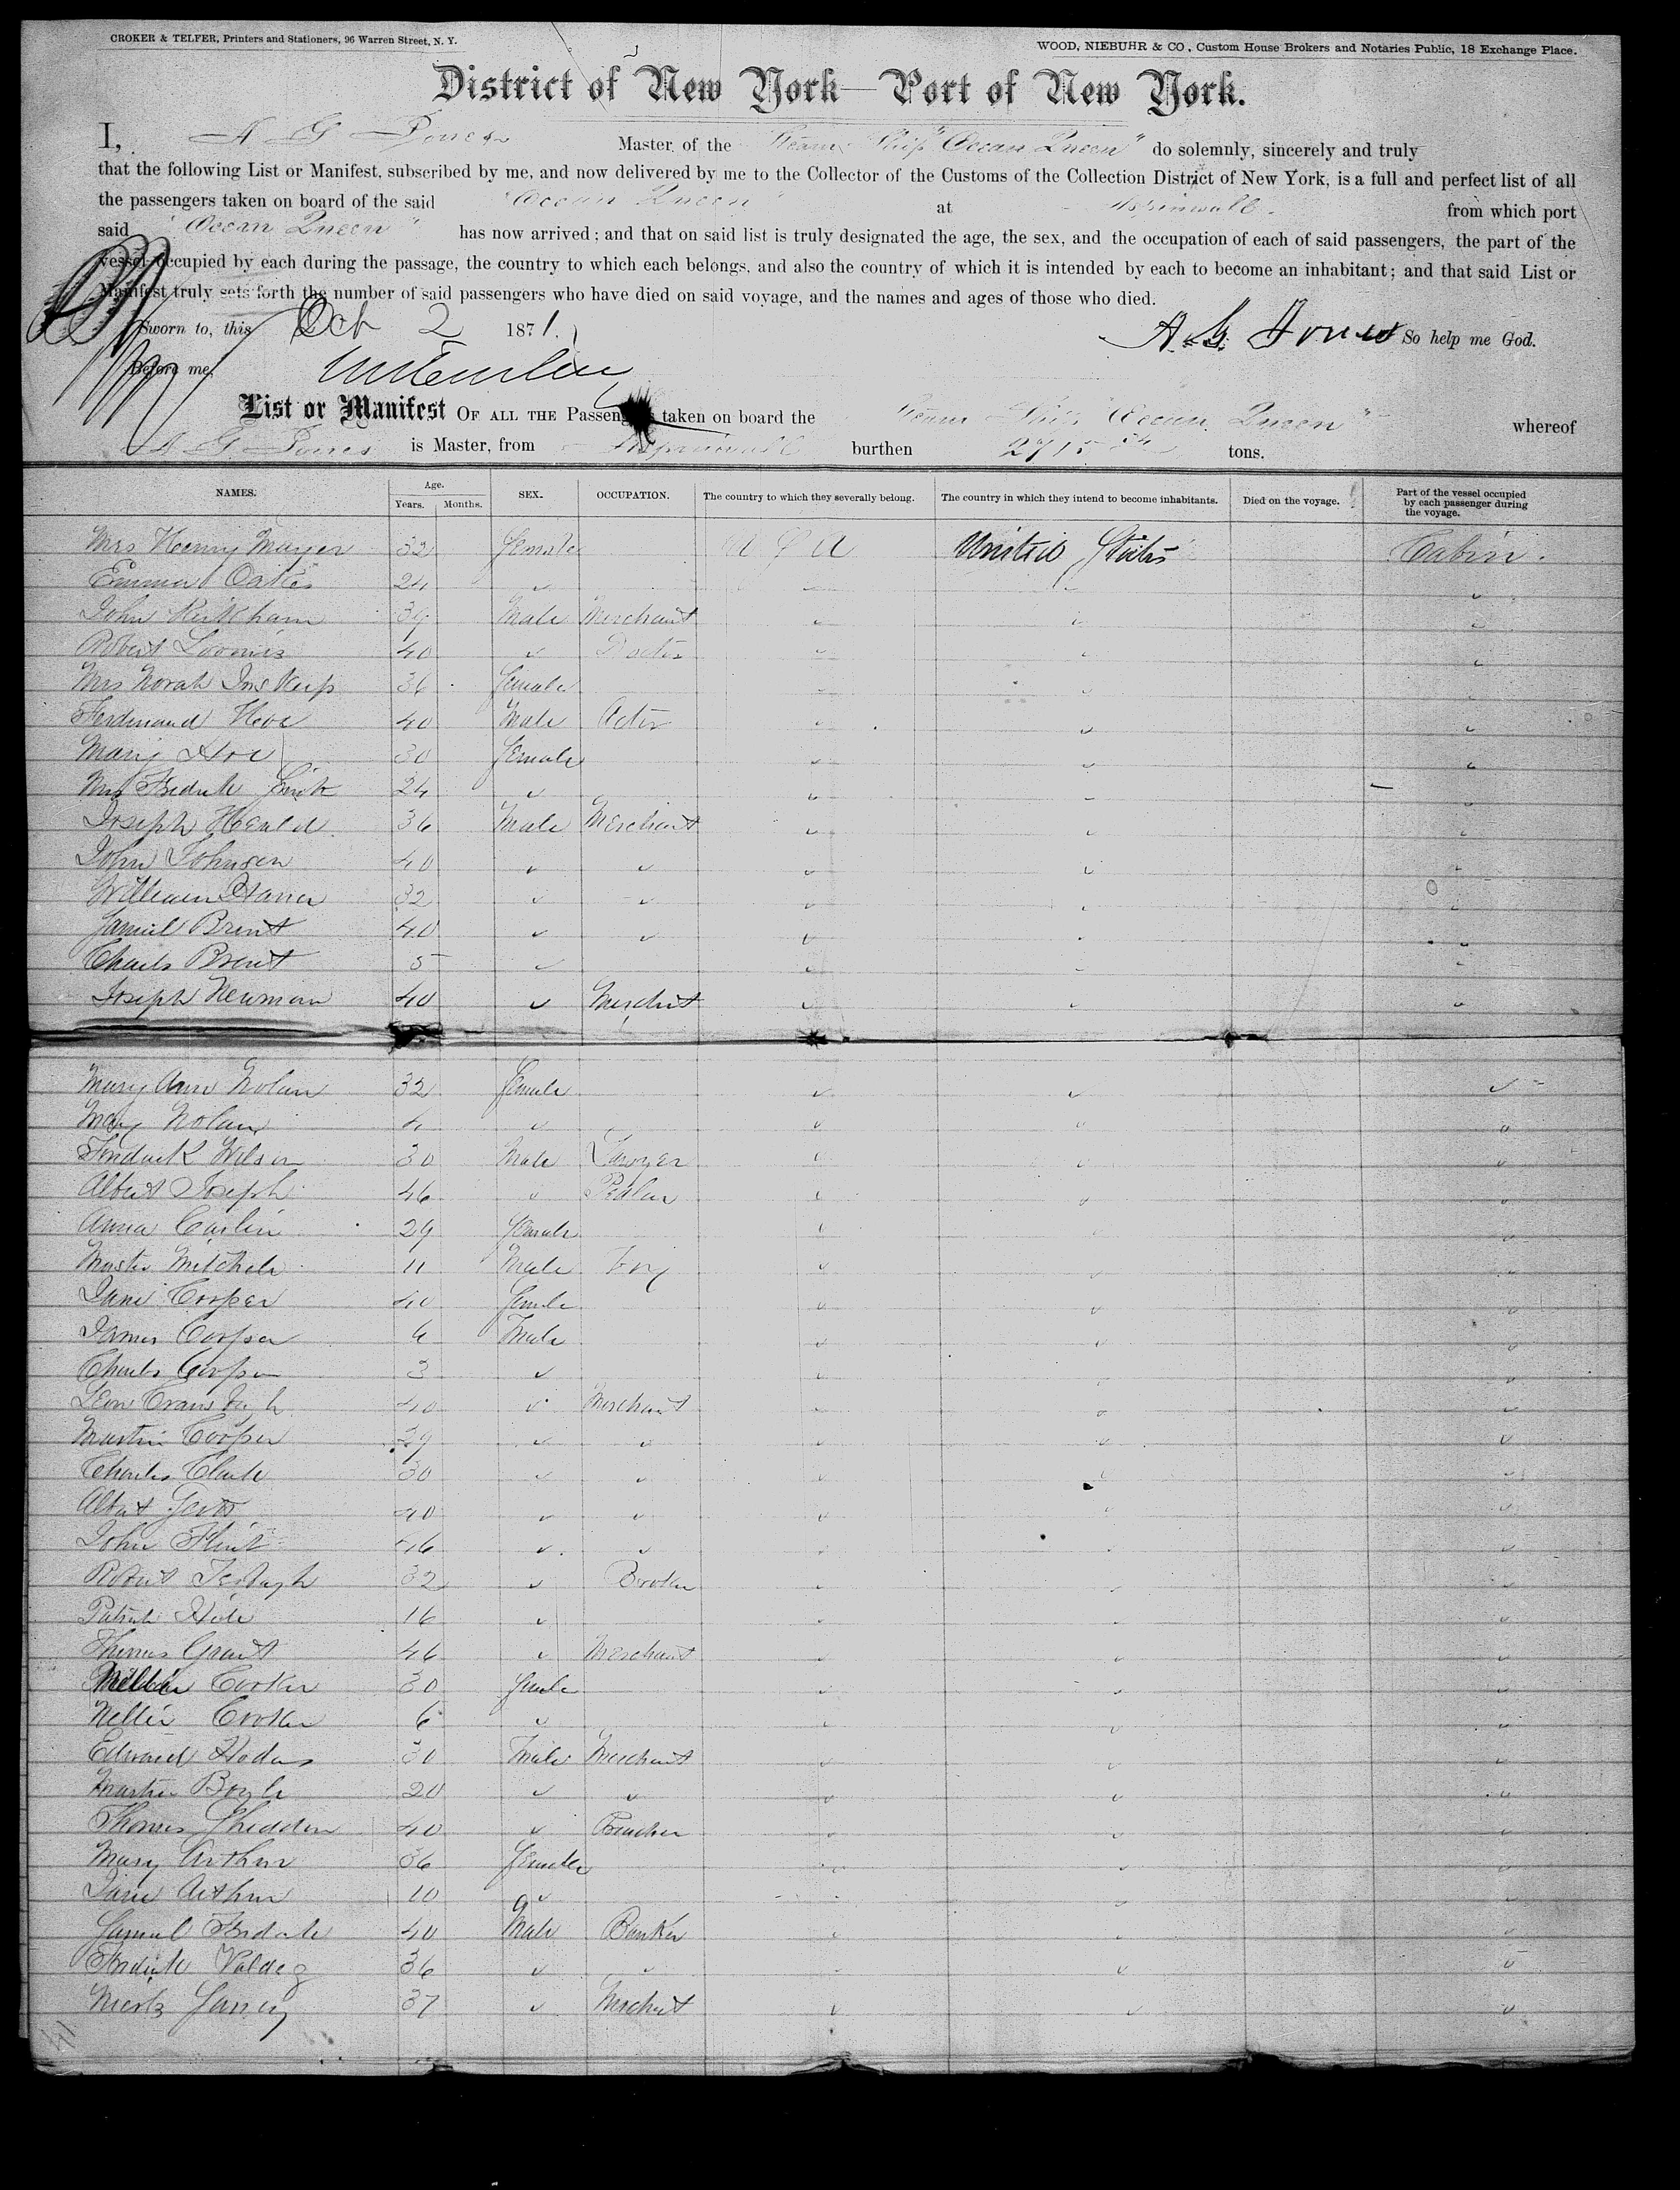 CROKER & TELFER, Printers and Stationers, 96 Warren Street, N. Y.
WOOD, NIEBUHR & CO., Custom House Brokers and Notaries Public, 18 Exchange Place.
District of New York—Port of New York.
I, A G Jones Master of the Steam Ship "Ocean Queen" do solemnly, sincerely and truly
that the following List or Manifest, subscribed by me, and now delivered by me to the Collector of the Customs of the Collection District of New York, is a full and perfect list of all
the passengers taken on board of the said "Ocean Queen" at Aspinwall from which port
said "Ocean Queen" has now arrived; and that on said list is truly designated the age, the sex, and the occupation of each of said passengers, the part of the
vessel occupied by each during the passage, the country to which each belongs, and also the country of which it is intended by each to become an inhabitant; and that said List or
Manifest truly sets forth the number of said passengers who have died on said voyage, and the names and ages of those who died.
Sworn to, this Oct 2 1871. A. G. Jones So help me God.
Before me,
List or Manifest OF ALL THE Passengers taken on board the Steam Ship "Ocean Queen" whereof
A G Jones is Master, from Aspinwall burthen 2715 tons.
NAMES. Age. Years. Months. SEX. OCCUPATION. The country to which they severally belong. The country in which they intend to become inhabitants. Died on the voyage. Part of the vessel occupied by each passenger during the voyage.
Mrs Henry Mayer 32 Female U S A United States Cabin.
Emma Oakes 24 "
John Kirkham 39 Male Merchant
Robert Loomis 40 " Doctor
Mrs Norah Inskeep 36 Female
Ferdinand Hoe 40 Male Actor
Mary Hoe 30 Female
Mrs 24 "
Joseph Herald 36 Male Merchant
John Johnson 40 " "
William 32 " "
Samuel Brent 40 " "
Charls Brent 5 "
Joseph Newman 40 " Merchut
Mary Ann Nolan 32 Female
Mary Nolan 4 "
Fredrick Wilson 30 Male Lawyer
Albert Joseph 46 " Pedlar
Anna Carlin 29 Female
Master Mitchele 11 Male Boy
Jane Cooper 40 Female
James Cooper 6 Male
Charls Cooper 3 "
Leon 40 " Merchant
Martin Cooper 29 " "
Charles Clark 30 " "
Albert 40 " "
John Flint 46 " "
Robert 32 " Broker
Patrick 16 "
Thomas Grant 46 " Merchant
Cooker 30 Female
Nellie Cooker 6 "
Edward 30 Male Merchant
Martin Boyle 20 " "
Thomas Shedden 40 "
Mary Arthur 36 Female
Jane Arthur 10 "
Samuel 40 Male Banker
Fredrick Valdez 36 " "
37 " Merchut